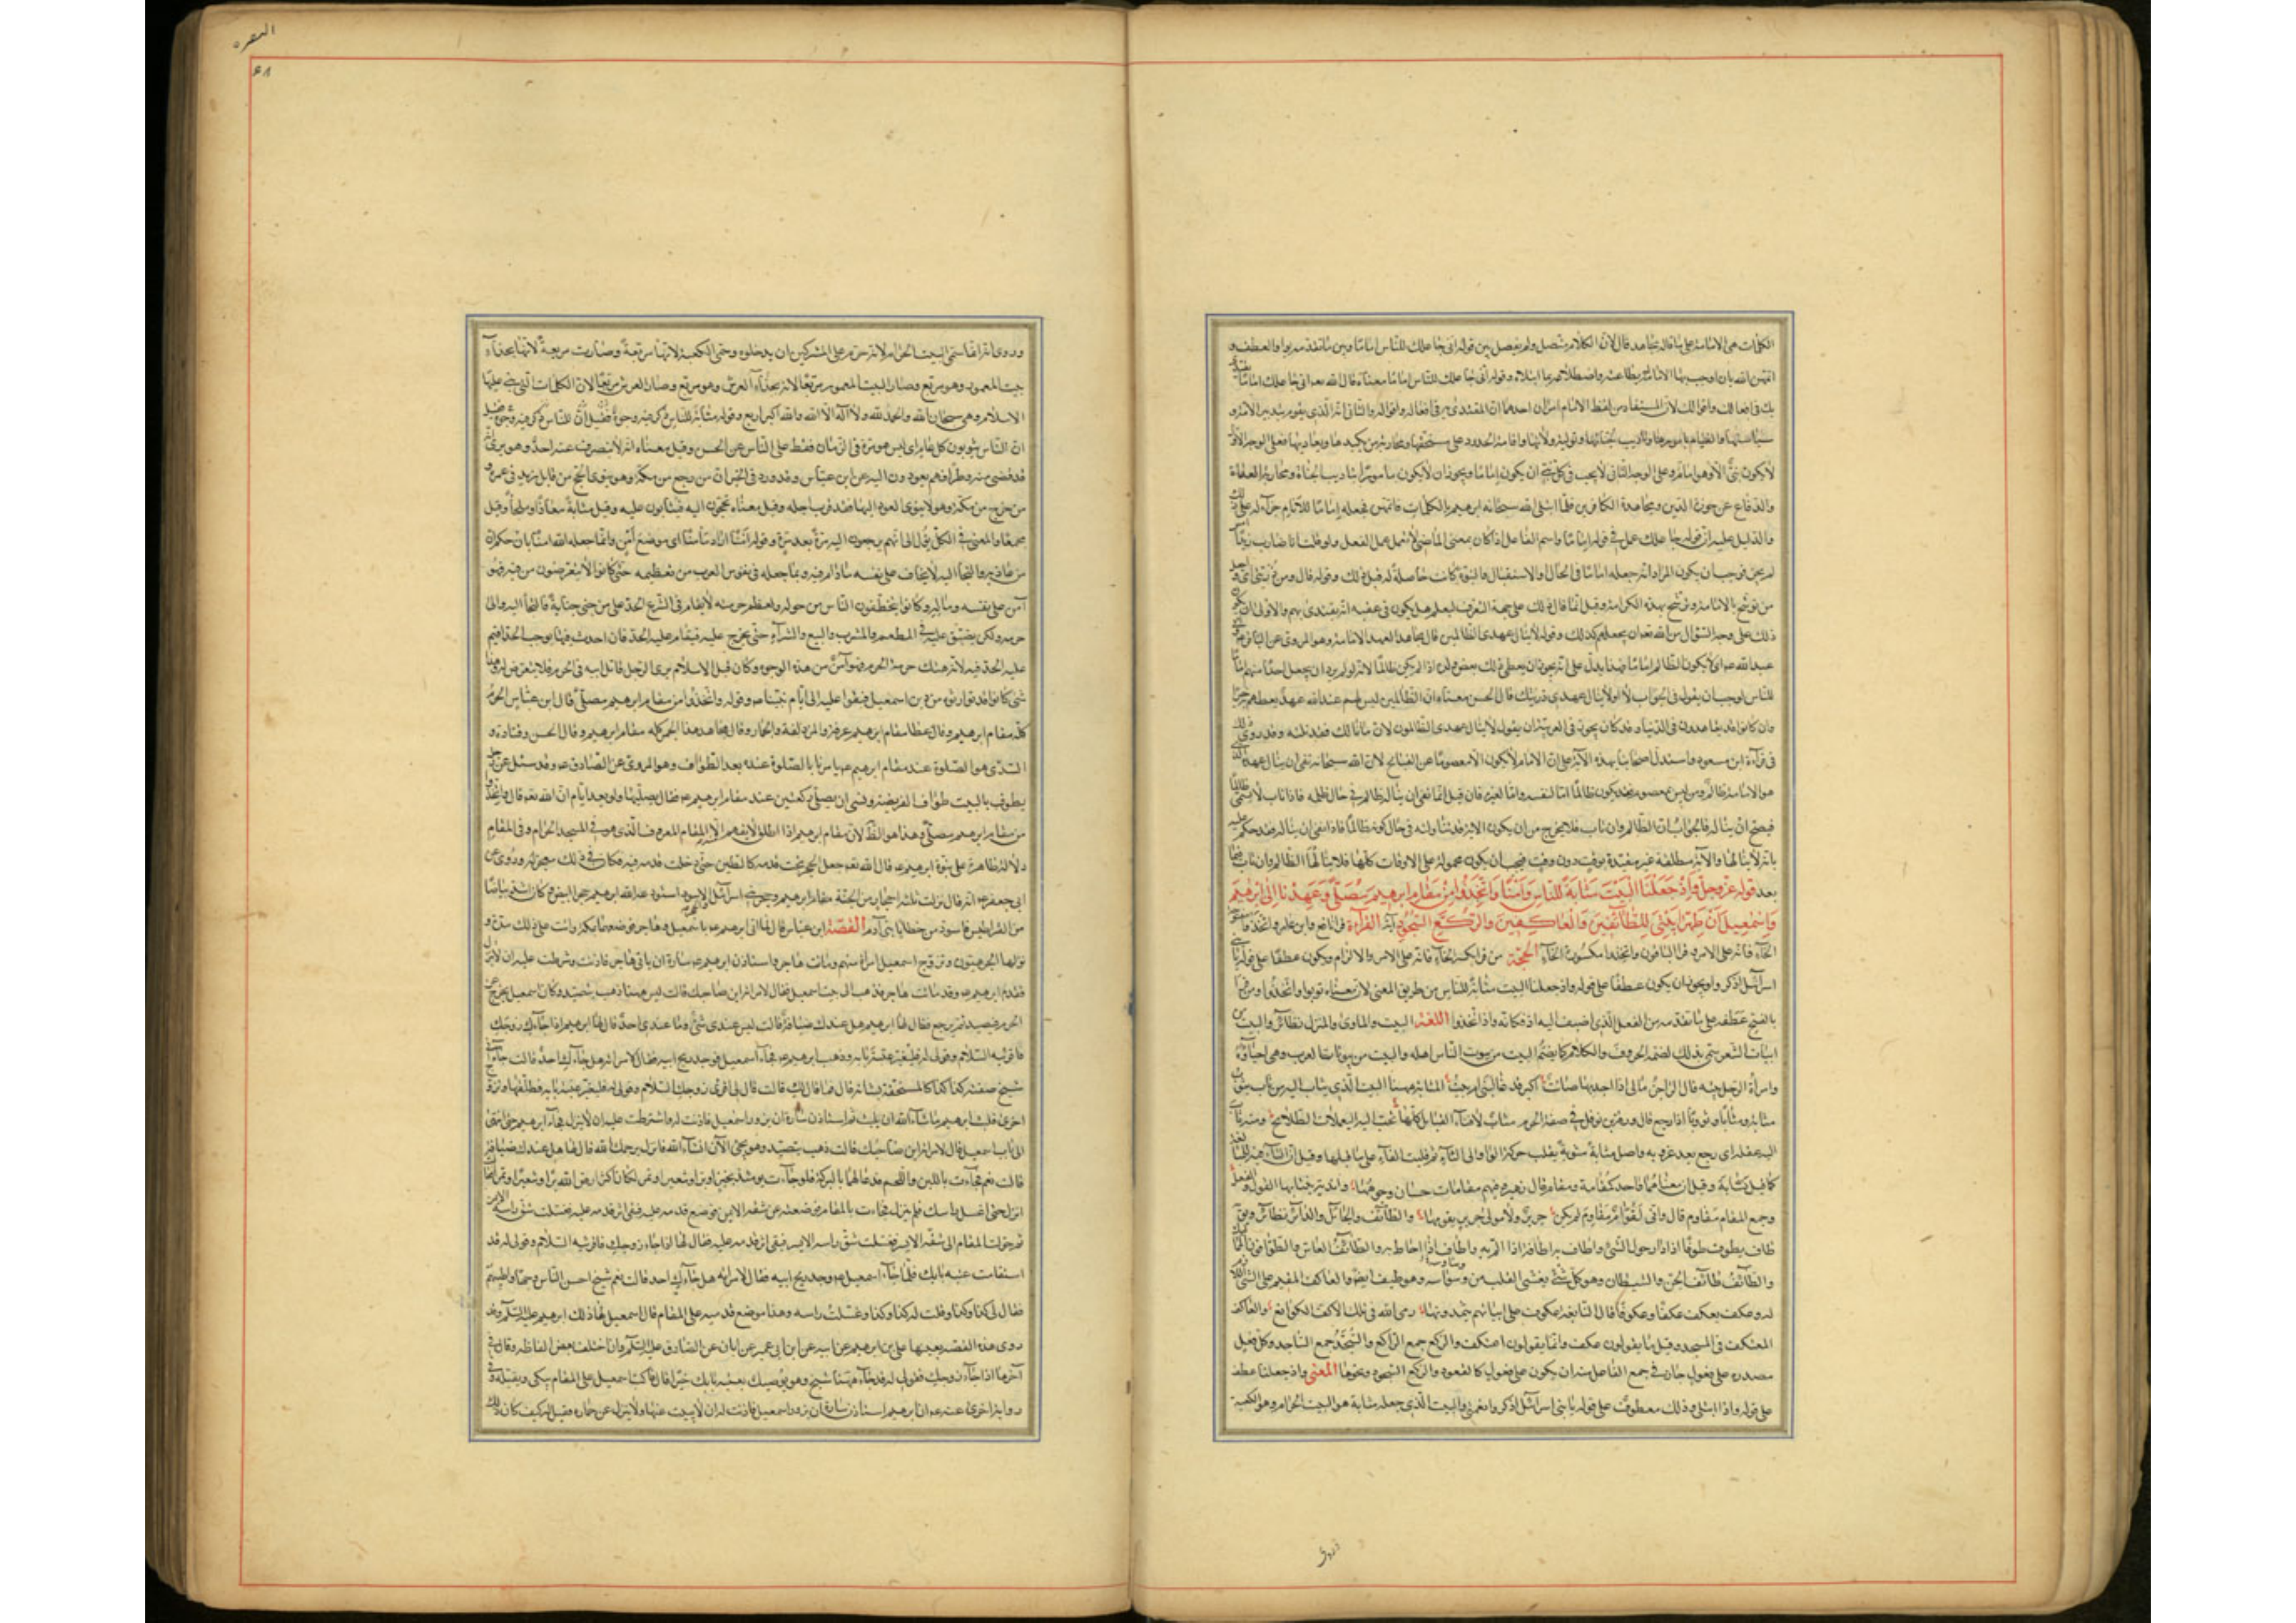 الكلمات هى الامامة على ما قاله مجاهد قال لان الكلام متصل ولم يفصل بين قوله انى جاعلك للناس اماما وبين ما تقدمه بواو العطف و
اتمهن الله بان اوجب بها الامامة له بطاعته واضطلاعه بما ابتلاه وقوله انى جاعلك للناس اماما معناه قال الله تعالى انى جاعلك اماما يقتدى
بك فى افعالك واقوالك لان المستفاد من لفظ الامام امران احدهما انه المقتدى به فى افعاله واقواله والثانى انه الذى يقوم بتدبير الامة و
سياستها والقيام بامورها وتاديب جناتها وتولية ولاتها واقامة الحدود على مستحقيها ومحاربة من يكيدها ويعاديها فعلى الوجه الاول
لا يكون نبى الا وهو امام وعلى الوجه الثانى لا يجب فى كل نبى ان يكون اماما ويجوز ان لا يكون مامورا بتاديب الجناة ومحاربة العداة
والدفاع عن حوزة الدين ومجاهدة الكافرين فلما ابتلى الله سبحانه ابرهيم بالكلمات فاتمهن جعله اماما للانام جزاء له على ذلك
والدليل عليه ان قوله جاعلك عمل فى قوله اماما واسم الفاعل اذا كان بمعنى الماضى لا يعمل عمل الفعل ولو قلت انا ضارب زيدا امس
لم يجز فوجب ان يكون المراد انه جعله اماما فى الحال والاستقبال والنبوة كانت حاصلة له قبل ذلك وقوله قال ومن ذريتى اى واجعل
من ذريتى من يوشح بالامامة ويوشح بهذه الكرامة وقيل انما قال ذلك على جهة التعرف ليعلم هل يكون فى عقبه ائمة يقتدى بهم والاولى ان يكون
ذلك على وجه السؤال من الله تعالى ان يجعلهم كذلك وقوله لا ينال عهدى الظالمين قال مجاهد العهد الامامة وهو المروى عن الباقر وابى
عبد الله ع اى لا يكون الظالم اماما فهذا يدل على انه يجوز ان يعطى ذلك بعض ولده اذا لم يكن ظالما لانه لو لم يرد ان يجعل احدا منهم اماما
للناس لوجب ان يقول فى الجواب لا او لا ينال عهدى ذريتك قال الحسن معناه ان الظالمين ليس لهم عند الله عهد يعطيهم به خيرا
وان كانوا قد يعاهدون فى الدنيا وقد كان يجوز فى العربية ان يقول لا ينال عهدى الظالمون لان ما نالك فقد نلته وقد روى ذلك
فى قراءة ابن مسعود واستدل اصحابنا بهذه الاية على ان الامام لا يكون الا معصوما عن القبايح لان الله سبحانه نفى ان ينال عهده الذى
هو الامامة ظالم ومن ليس بمعصوم فقد يكون ظالما اما لنفسه واما لغيره فان قيل انما نفى ان يناله ظالم فى حال ظلمه فاذا تاب لا يسمى ظالما
فيصح ان يناله فالجواب ان الظالم وان تاب فلا يخرج من ان يكون الاية قد تناولته فى حال كونه ظالما فاذا نفى ان يناله فقد حكم عليه
بانه لا ينالها والاية مطلقة غير مقيدة بوقت دون وقت فيجب ان يكون محمولة على الاوقات كلها فلا ينالها الظالم وان تاب فيما
بعد قوله عز وجل وَاِذْ جَعَلْنَا الْبَيْتَ مَثَابَةً لِلنَّاسِ وَاَمْنًا وَاتَّخِذُوا مِنْ مَقَامِ ابرهيم مُصَلًّى وَعَهِدْنَا اِلٰى ابرهيمَ
وَاِسْمٰعِيلَ اَنْ طَهِّرَا بَيْتِىَ لِلطَّائِفِينَ وَالْعَاكِفِينَ وَالرُّكَّعِ السُّجُودِ اية القراءة قرا نافع وابن عامر واتخذوا بفتح
الخاء فانه على الامر وقرا الباقون واتخذوا مكسورة الخاء الحجة من قرا بكسر الخاء فانه على الامر والالزام ويكون عطفا على قوله يا بنى
اسرائيل اذكروا ويجوز ان يكون عطفا على قوله واذ جعلنا البيت مثابة للناس من طريق المعنى لان معناه ثوبوا واتخذوا ومن قرا
بالفتح عطفه على ما تقدمه من الفعل الذى اضيف اليه اذ فكانه واذ اتخذوا اللغة البيت والماوى والمنزل نظائر والبيت من
ابيات الشعر سمى بذلك لضمه الحروف والكلام كما يضم البيت من بيوت الناس اهله والبيت من بيوتات العرب وهى احياؤه
وامراة الرجل بيته قال الراجز مالى اذا اجذبها صاءيت اكبر قد غالنى ام بيت المثابة ههنا الموضع الذى يثاب اليه من ثاب يثوب
مثابة ومثابا وثؤوبا اذا رجع قال ورقة بن نوفل فى صفة الحرم مثاب لافناء القبايل كلها تخب اليه اليعملات الطلائح ومنه ثاب
اليه عقله اى رجع بعد عزوبه واصل مثابة مثوبة نقلت حركة الواو الى الثاء ثم قلبت الفا على ما قبلها وقيل ان التاء فيه للمبالغة
كما قيل نسابة وقيل ان معناهما واحد كمقامة ومقام قال زهير وفيهم مقامات حسان وجوهها واندية ينتابها القول والفعل
وجمع المقام مقاوم قال وانى لَقَوَّامٌ مَقَاوِمَ لم يكن جرير ولا مولى جرير يقومها والطائف والجائل والدائر نظائر ويق
طاف يطوف طوفا اذا دار حول الشئ واطاف به اطافة اذا الم به واطاف به اذا احاط به والطائف العاس
والطائف طائف الجن والشيطان وهو كل شئ يغشى القلب من وسواسه وهو طيف ايضا والعاكف المقيم على الشئ اللازم
له وعكف يعكف عكفا وعكوفا قال النابغة عكوف على ابياتهم يثمدونها رمى الله فى تلك الاكف الكوانع والعاكف
المعتكف فى المسجد وقل ما يقولون عكف وانما يقولون اعتكف والركع جمع الراكع والسجد جمع الساجد وكل فعل
مصدره على فعول جاز فى جمع الفاعل منه ان يكون على فعول كالقعود والركوع السجود ونحوها المعنى واذ جعلنا عطف
على قوله واذ ابتلى وذلك معطوف على قوله يا بنى اسرائيل اذكروا نعمتى والبيت الذى جعله مثابة هو البيت الحرام وهو الكعبة
البقره
٤٨
وروى انه انما سمى البيت الحرام لانه حرم على المشركين ان يدخلوه وسمى الكعبة لانها مربعة وصارت مربعة لانها بحذاء
بيت المعمور وهو مربع وصار البيت المعمور مربعا لانه بحذاء العرش وهو مربع وصار العرش مربعا لان الكلمات التى بنى عليها
الاسلام وهى سبحان الله والحمد لله ولا اله الا الله والله اكبر اربع وقوله مثابة للناس ذكر فيه وجوه فقيل
ان الناس يثوبون كل عام اى ليس هو مرة فى الزمان فقط على الناس عن الحسن وقيل معناه انه لا ينصرف عنه احد وهو يرى انه
قد قضى منه وطرا فهم يعودون اليه عن ابن عباس وقد ورد فى الخبر ان من رجع من مكة وهو ينوى الحج من قابل زيد فى عمره و
من خرج من مكة وهو لا ينوى العود اليها فقد قرب اجله وقيل معناه يحجون اليه فيثابون عليه وقيل مثابة معاذا وملجأ وقيل
مجمعا والمعنى فى الكل يؤل الى انهم يرجعون اليه مرة بعد مرة وقوله امنا اراد مامنا اى موضع امن وانما جعله الله امنا بان حكم ان
من عاذ به والتجأ اليه لا يخاف على نفسه مادام فيه وبما جعله فى نفوس العرب من تعظيمه حتى كانوا لا يتعرضون من فيه فهو
آمن على نفسه وماله وكانوا يتخطفون الناس من حوله ولعظم حرمته لا يقام فى الشرع الحد على من جنى جناية فالتجأ اليه والى
حرمه ولكن يضيق عليه فى المطعم والمشرب والبيع والشراء حتى يخرج عنه فيقام عليه الحد فان احدث فيه ما يوجب الحد اقيم
عليه الحد فيه لانه هتك حرمة الحرم فهو آمن من هذه الوجوه وكان قبل الاسلام يرى الرجل قاتل ابيه فى الحرم فلا يتعرض له وهذا
شئ كانوا قد توارثوه من دين اسمعيل فبقوا عليه الى ايام نبينا ص وقوله واتخذوا من مقام ابرهيم مصلى قال ابن عباس الحج
كله مقام ابرهيم وقال عطا مقام ابرهيم عرفة والمزدلفة والجمار وقال مجاهد الحرم كله مقام ابرهيم وقال الحسن وقتادة و
السدى هو الصلوة عند مقام ابرهيم امرنا بالصلوة عنده بعد الطواف وهو المروى عن الصادق ع وقد سئل عن رجل
يطوف بالبيت طواف الفريضة ونسى ان يصلى ركعتين عند مقام ابرهيم فقال يصليها ولو بعد ايام ان الله تعه قال واتخذوا
من مقام ابرهيم مصلى وهذا هو الظاهر لان مقام ابرهيم اذا اطلق لا يفهم الا المقام المعروف الذى هو فى المسجد الحرام وفى المقام
دلالة ظاهرة على نبوة ابرهيم ع فان الله تعه جعل الحجر تحت قدمه كالطين حتى دخلت قدمه فيه فكان فى ذلك معجزة له وروى عن
ابى جعفر ع انه قال نزلت ثلثة احجار من الجنة مقام ابرهيم وحجر بنى اسرائيل والحجر الاسود استودعه الله ابرهيم حجرا ابيض وكان اشد بياضا
من القراطيس فاسود من خطايا بنى آدم القصة ابن عباس قال لما اتى ابرهيم ع باسمعيل وهاجر فوضعهما بمكة واتت على ذلك مدة و
نزلها الجرهميون وتزوج اسمعيل امراة منهم وماتت هاجر واستاذن ابرهيم ع سارة ان ياتى هاجر فاذنت وشرطت عليه ان لا ينزل
فقدم ابرهيم ع وقد ماتت هاجر فذهب الى بيت اسمعيل فقال لامراته اين صاحبك قالت ليس هيهنا ذهب يتصيد وكان اسمعيل يخرج من
الحرم فيصيد ثم يرجع فقال لها ابرهيم هل عندك ضيافة قالت ليس عندى شئ وما عندى احد قال لها ابرهيم اذا جاء زوجك
فاقرئيه السلام وقولى له فليغير عتبة بابه وذهب ابرهيم ع فجاء اسمعيل فوجد ريح ابيه فقال لامراته هل جاءك احد قالت جاءنى
شيخ صفته كذا وكذا كالمستخفة بشانه قال فما قال لك قالت قال لى اقرئى زوجك السلام وقولى له فليغير عتبة بابه فطلقها وتزوج
اخرى فلبث ابرهيم ما شاء الله ان يلبث ثم استاذن سارة ان يزور اسمعيل فاذنت له واشترطت عليه ان لا ينزل فجاء ابرهيم حتى انتهى
الى باب اسمعيل فقال لامراته اين صاحبك قالت ذهب يتصيد وهو يجئ الآن انشاء الله فانزل يرحمك الله قال لها هل عندك ضيافة
قالت نعم فجاءت باللبن واللحم فدعا لهما بالبركة فلو جاءت يومئذ بخبز او بر او شعير او تمر لكان اكثر ارض الله برا وشعيرا وتمرا فقالت
انزل حتى اغسل راسك فلم ينزل فجاءت بالمقام فوضعته عن شقه الايمن فوضع قدمه عليه فبقى اثر قدمه عليه فغسلت شق راسه الايمن
ثم حولت المقام الى شقه الايسر فغسلت شق راسه الايسر فبقى اثر قدمه عليه فقال لها اذا جاء زوجك فاقرئيه السلام وقولى له قد
استقامت عتبة بابك فلما جاء اسمعيل ع وجد ريح ابيه فقال لامراته هل جاءك احد قالت نعم شيخ احسن الناس وجها واطيبهم
فقال لى كذا وكذا وقلت له كذا وكذا وغسلت راسه وهذا موضع قدميه على المقام قال اسمعيل لها ذلك ابرهيم عليه السلم وقد
روى هذه القصة بعينها على بن ابرهيم عن ابيه عن ابن ابى عمير عن ابان عن الصادق عليه السلم وان اختلف بعض الفاظه وقال فى
آخرها اذا جاء زوجك فقولى له قد جاء ههنا شيخ وهو يوصيك بعتبة بابك خيرا قال فاكب اسمعيل على المقام يبكى ويقبله وفى
رواية اخرى عنه ع ان ابرهيم استاذن سارة ان يزور اسمعيل فاذنت له ان لا يبيت عنها ولا ينزل عن حماره فقيل له كيف كان ذلك
وروى